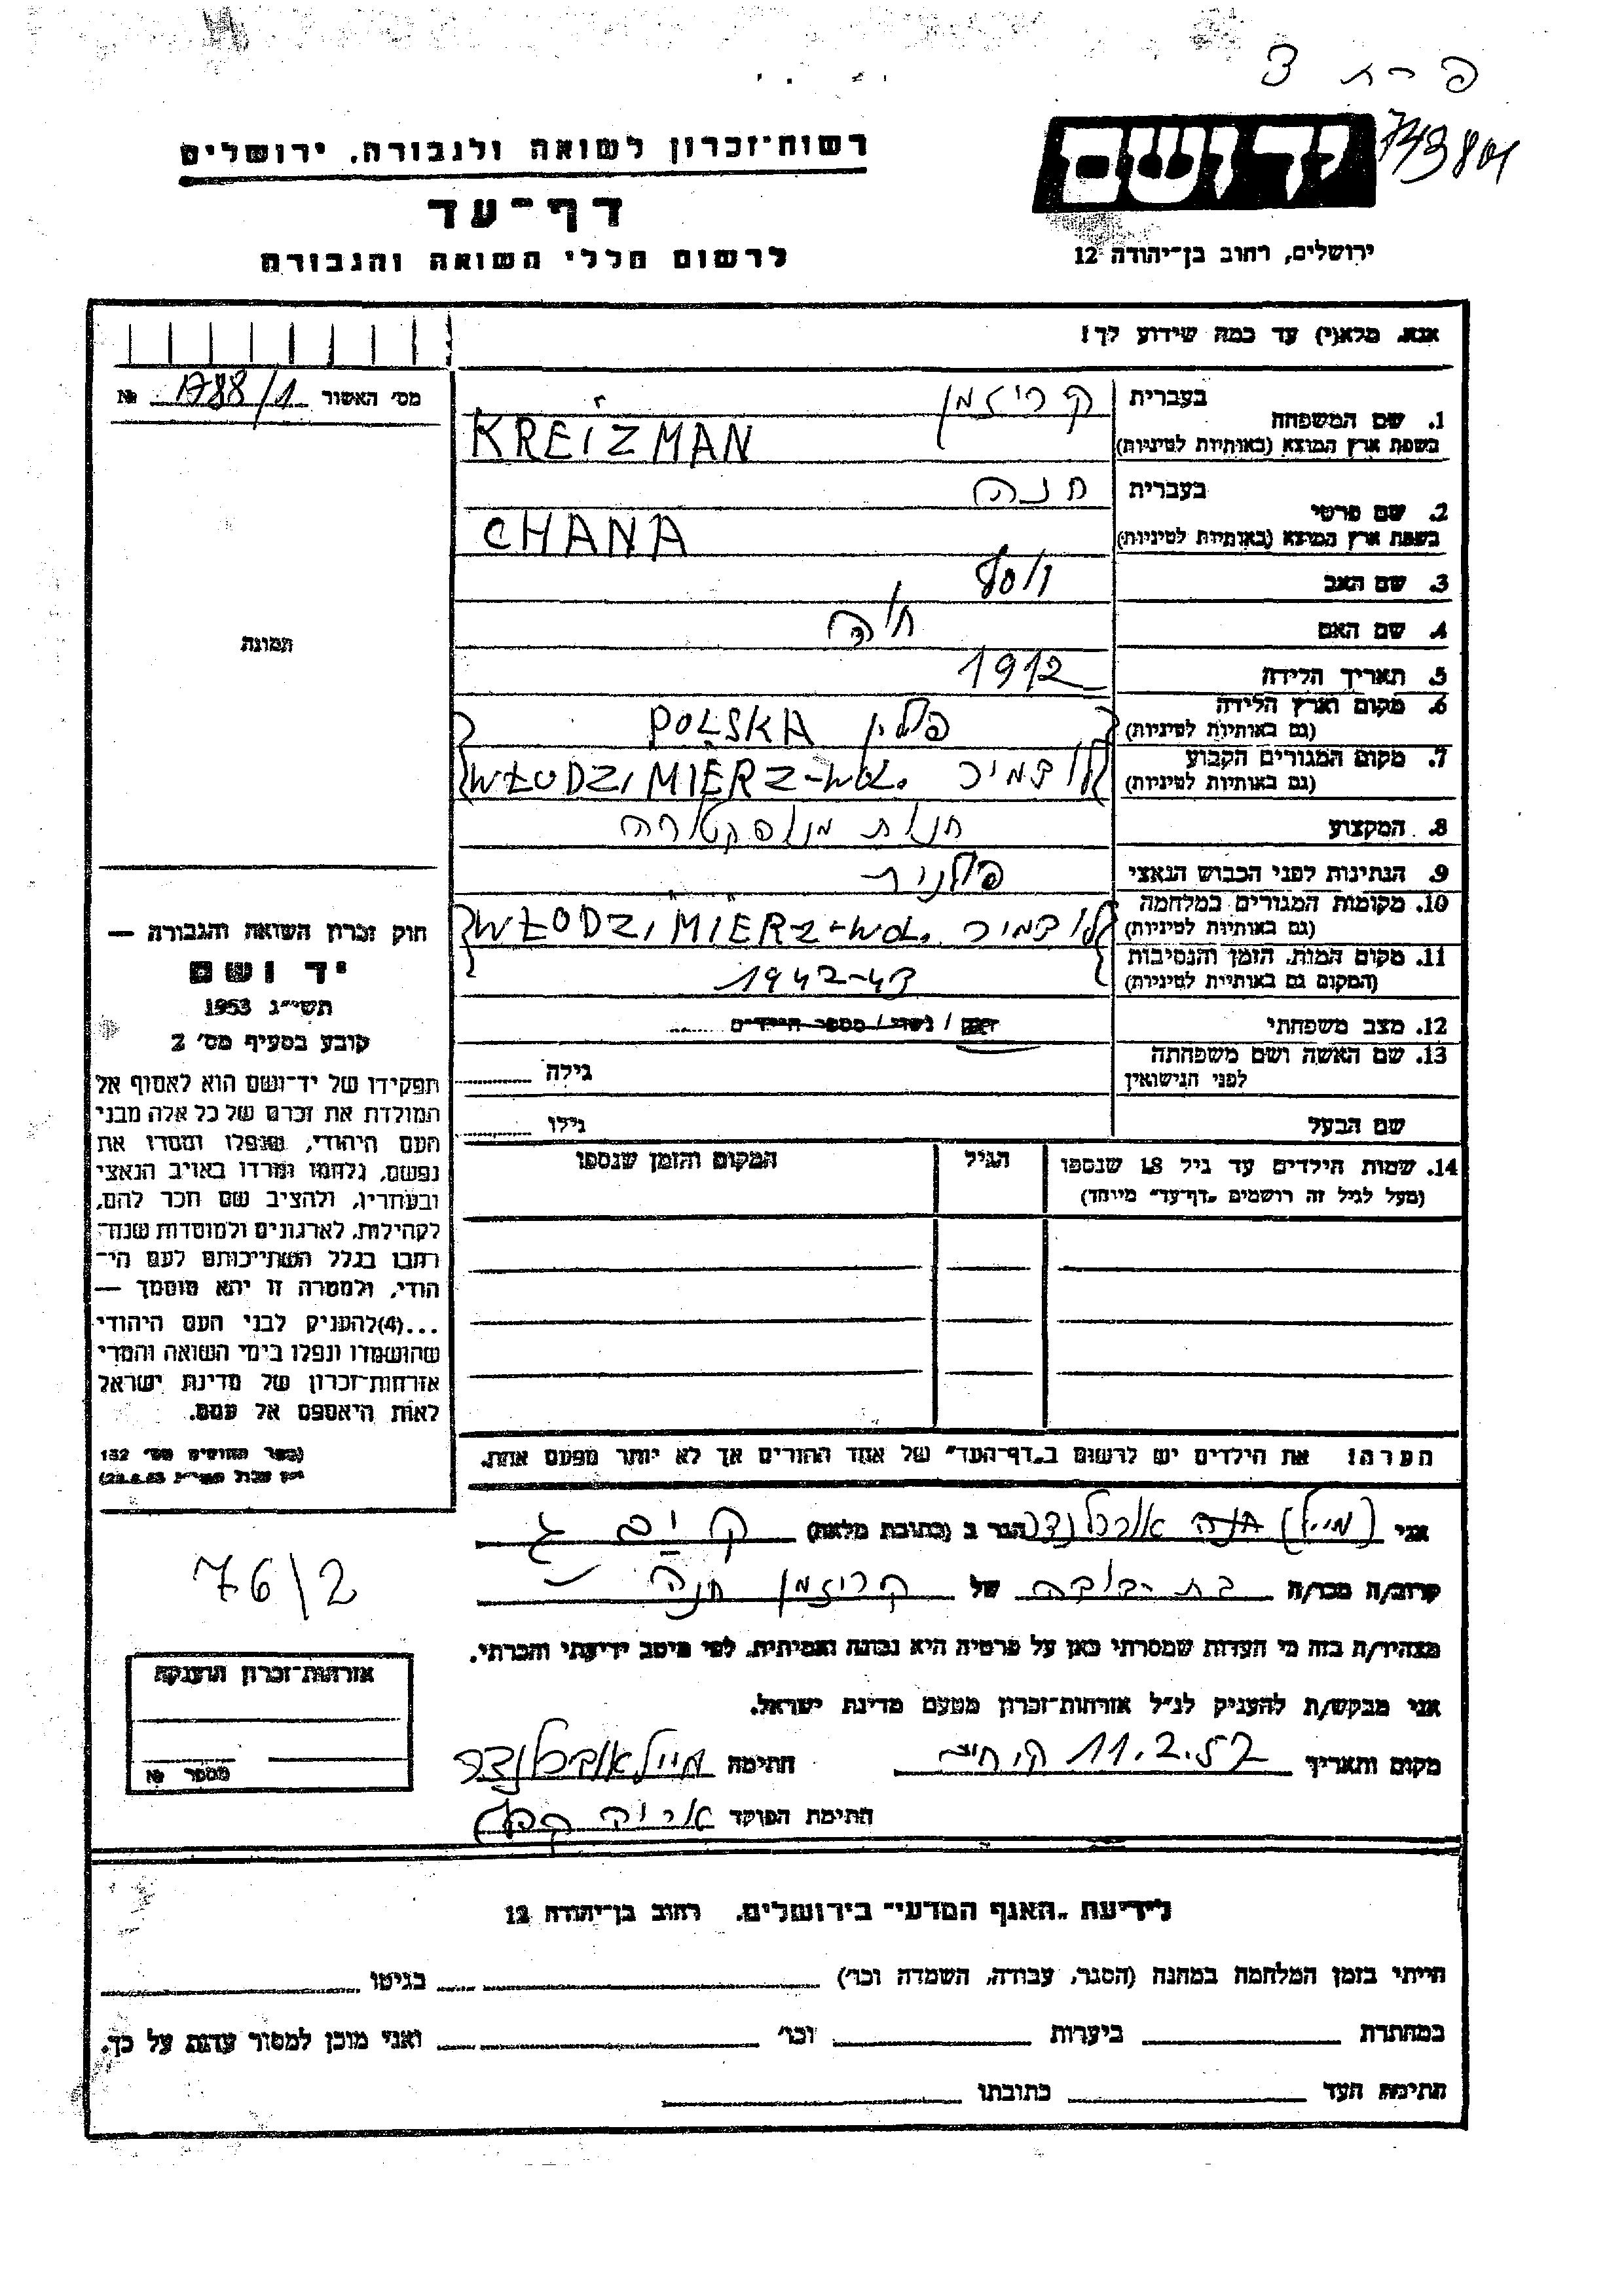 פ-ת 3
743801
יד ושם
רשות-זכרון לשואה ולגבורה. ירושלים
דף-עד
לרשום חללי השואה והגבורה
ירושלים, רחוב בן-יהודה 12
אנא, מלא(י) עד כמה שידוע לך!
מס' האשור 1788/1 №
1. שם המשפחה בעברית קריזמן
בשפת ארץ המוצא (באותיות לטיניות) KREIZMAN
2. שם פרטי בעברית חנה
בשפת ארץ המוצא (באותיות לטיניות) CHANA
3. שם האב יוסף
4. שם האם חיה
תמונה
5. תאריך הלידה 1912
6. מקום וארץ הלידה (גם באותיות לטיניות) פולין POLSKA
7. מקום המגורים הקבוע (גם באותיות לטיניות) WŁODZIMIERZ-WOŁ.
8. המקצוע חנות מנופקטורה
9. הנתינות לפני הכבוש הנאצי פולנית
10. מקומות המגורים במלחמה (גם באותיות לטיניות) WŁODZIMIERZ-WOŁ.
11. מקום המות, הזמן והנסיבות (המקום גם באותיות לטיניות) 1942-43
12. מצב משפחתי רווק / נשוי / מספר הילדים
13. שם האשה ושם משפחתה לפני הנישואין גילה
שם הבעל גילו
14. שמות הילדים עד גיל 18 שנספו הגיל המקום והזמן שנספו
(מעל לגיל זה רושמים "דף-עד" מיוחד)
חוק זכרון השואה והגבורה —
יד ושם
תשי"ג 1953
קובע בסעיף מס' 2
תפקידו של יד-ושם הוא לאסוף אל
המולדת את זכרם של כל אלה מבני
העם היהודי, שנפלו ומסרו את
נפשם, נלחמו ומרדו באויב הנאצי
ובעוזריו, ולהציב שם וזכר להם,
לקהילות, לארגונים ולמוסדות שנח-
רבו בגלל השתייכותם לעם הי-
הודי, ולמטרה זו יהא מוסמך —
...(4)להעניק לבני העם היהודי
שהושמדו ונפלו בימי השואה והמרי
אזרחות-זכרון של מדינת ישראל
לאות היאספם אל עמם.
(ספר החוקים מס' 132
הערה! את הילדים יש לרשום ב"דף-העד" של אחד ההורים אך לא יותר מפעם אחת.
אני (מייל) חנה אוברלנדר הגר ב (כתובת מלאה) ק ים ג
קרוב/ה מכר/ה בת-דודה של קריזמן חנה
76/2
מצהיר/ה בזה כי העדות שמסרתי כאן על פרטיה היא נכונה ואמיתית, לפי מיטב ידיעתי והכרתי.
אני מבקש/ת להעניק לנ"ל אזרחות-זכרון מטעם מדינת ישראל.
אזרחות-זכרון הוענקה
מספר №
מקום ותאריך 11.2.57 ק. חתימה מייל אוברלנדר
חתימת הפוקד
לידיעת "האגף המדעי" בירושלים. רחוב בן-יהודה 12
הייתי בזמן המלחמה במחנה (הסגר, עבודה, השמדה וכו') בגיטו
במחתרת ביערות וכו' ואני מוכן למסור עדות על כך.
חתימת העד כתובתו